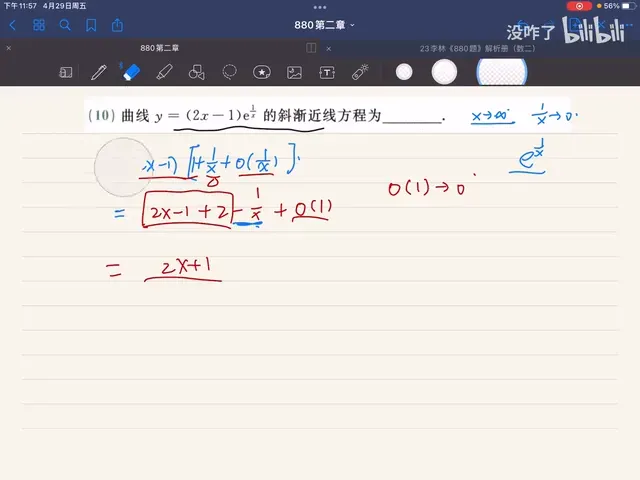 下午11:57 4月29日周五
56%
880第二章
没咋了 bilibili
880第二章
23李林《880题》解析册（数二）
(10) 曲线 y = (2x-1)e^{1/x} 的斜渐近线方程为________.
x→∞ 1/x→0.
x-1) [1+1/x+o(1/x)].
e^{1/x}
= 2x-1+2 - 1/x + o(1)
o(1)→0
= 2x+1